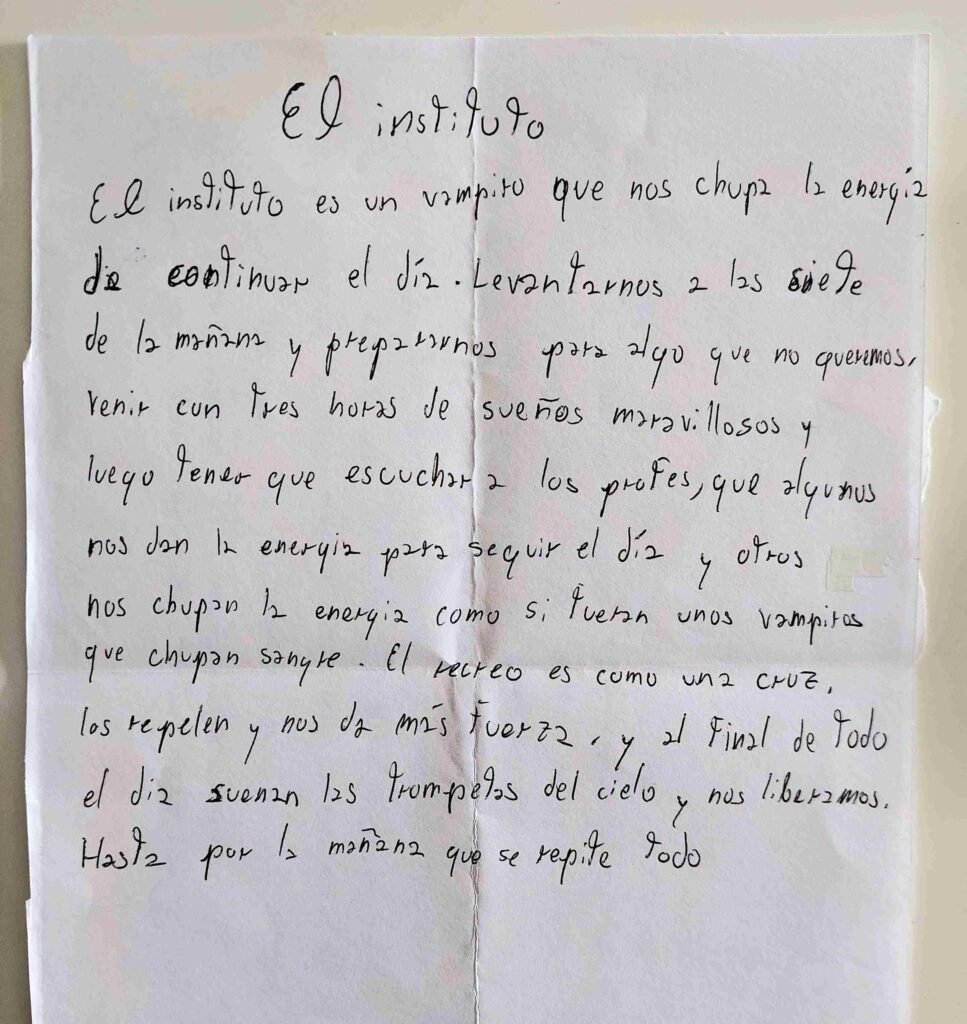 El instituto
El instituto es un vampiro que nos chupa la energía
de continuar el día. Levantarnos a las siete
de la mañana y prepararnos para algo que no queremos,
venir con tres horas de sueños maravillosos y
luego tener que escuchar a los profes, que algunos
nos dan la energia para seguir el día y otros
nos chupan la energia como si fueran unos vampiros
que chupan sangre. El recreo es como una cruz,
los repelen y nos da más fuerza, y al final de todo
el dia suenan las trompetas del cielo y nos liberamos.
Hasta por la mañana que se repite todo